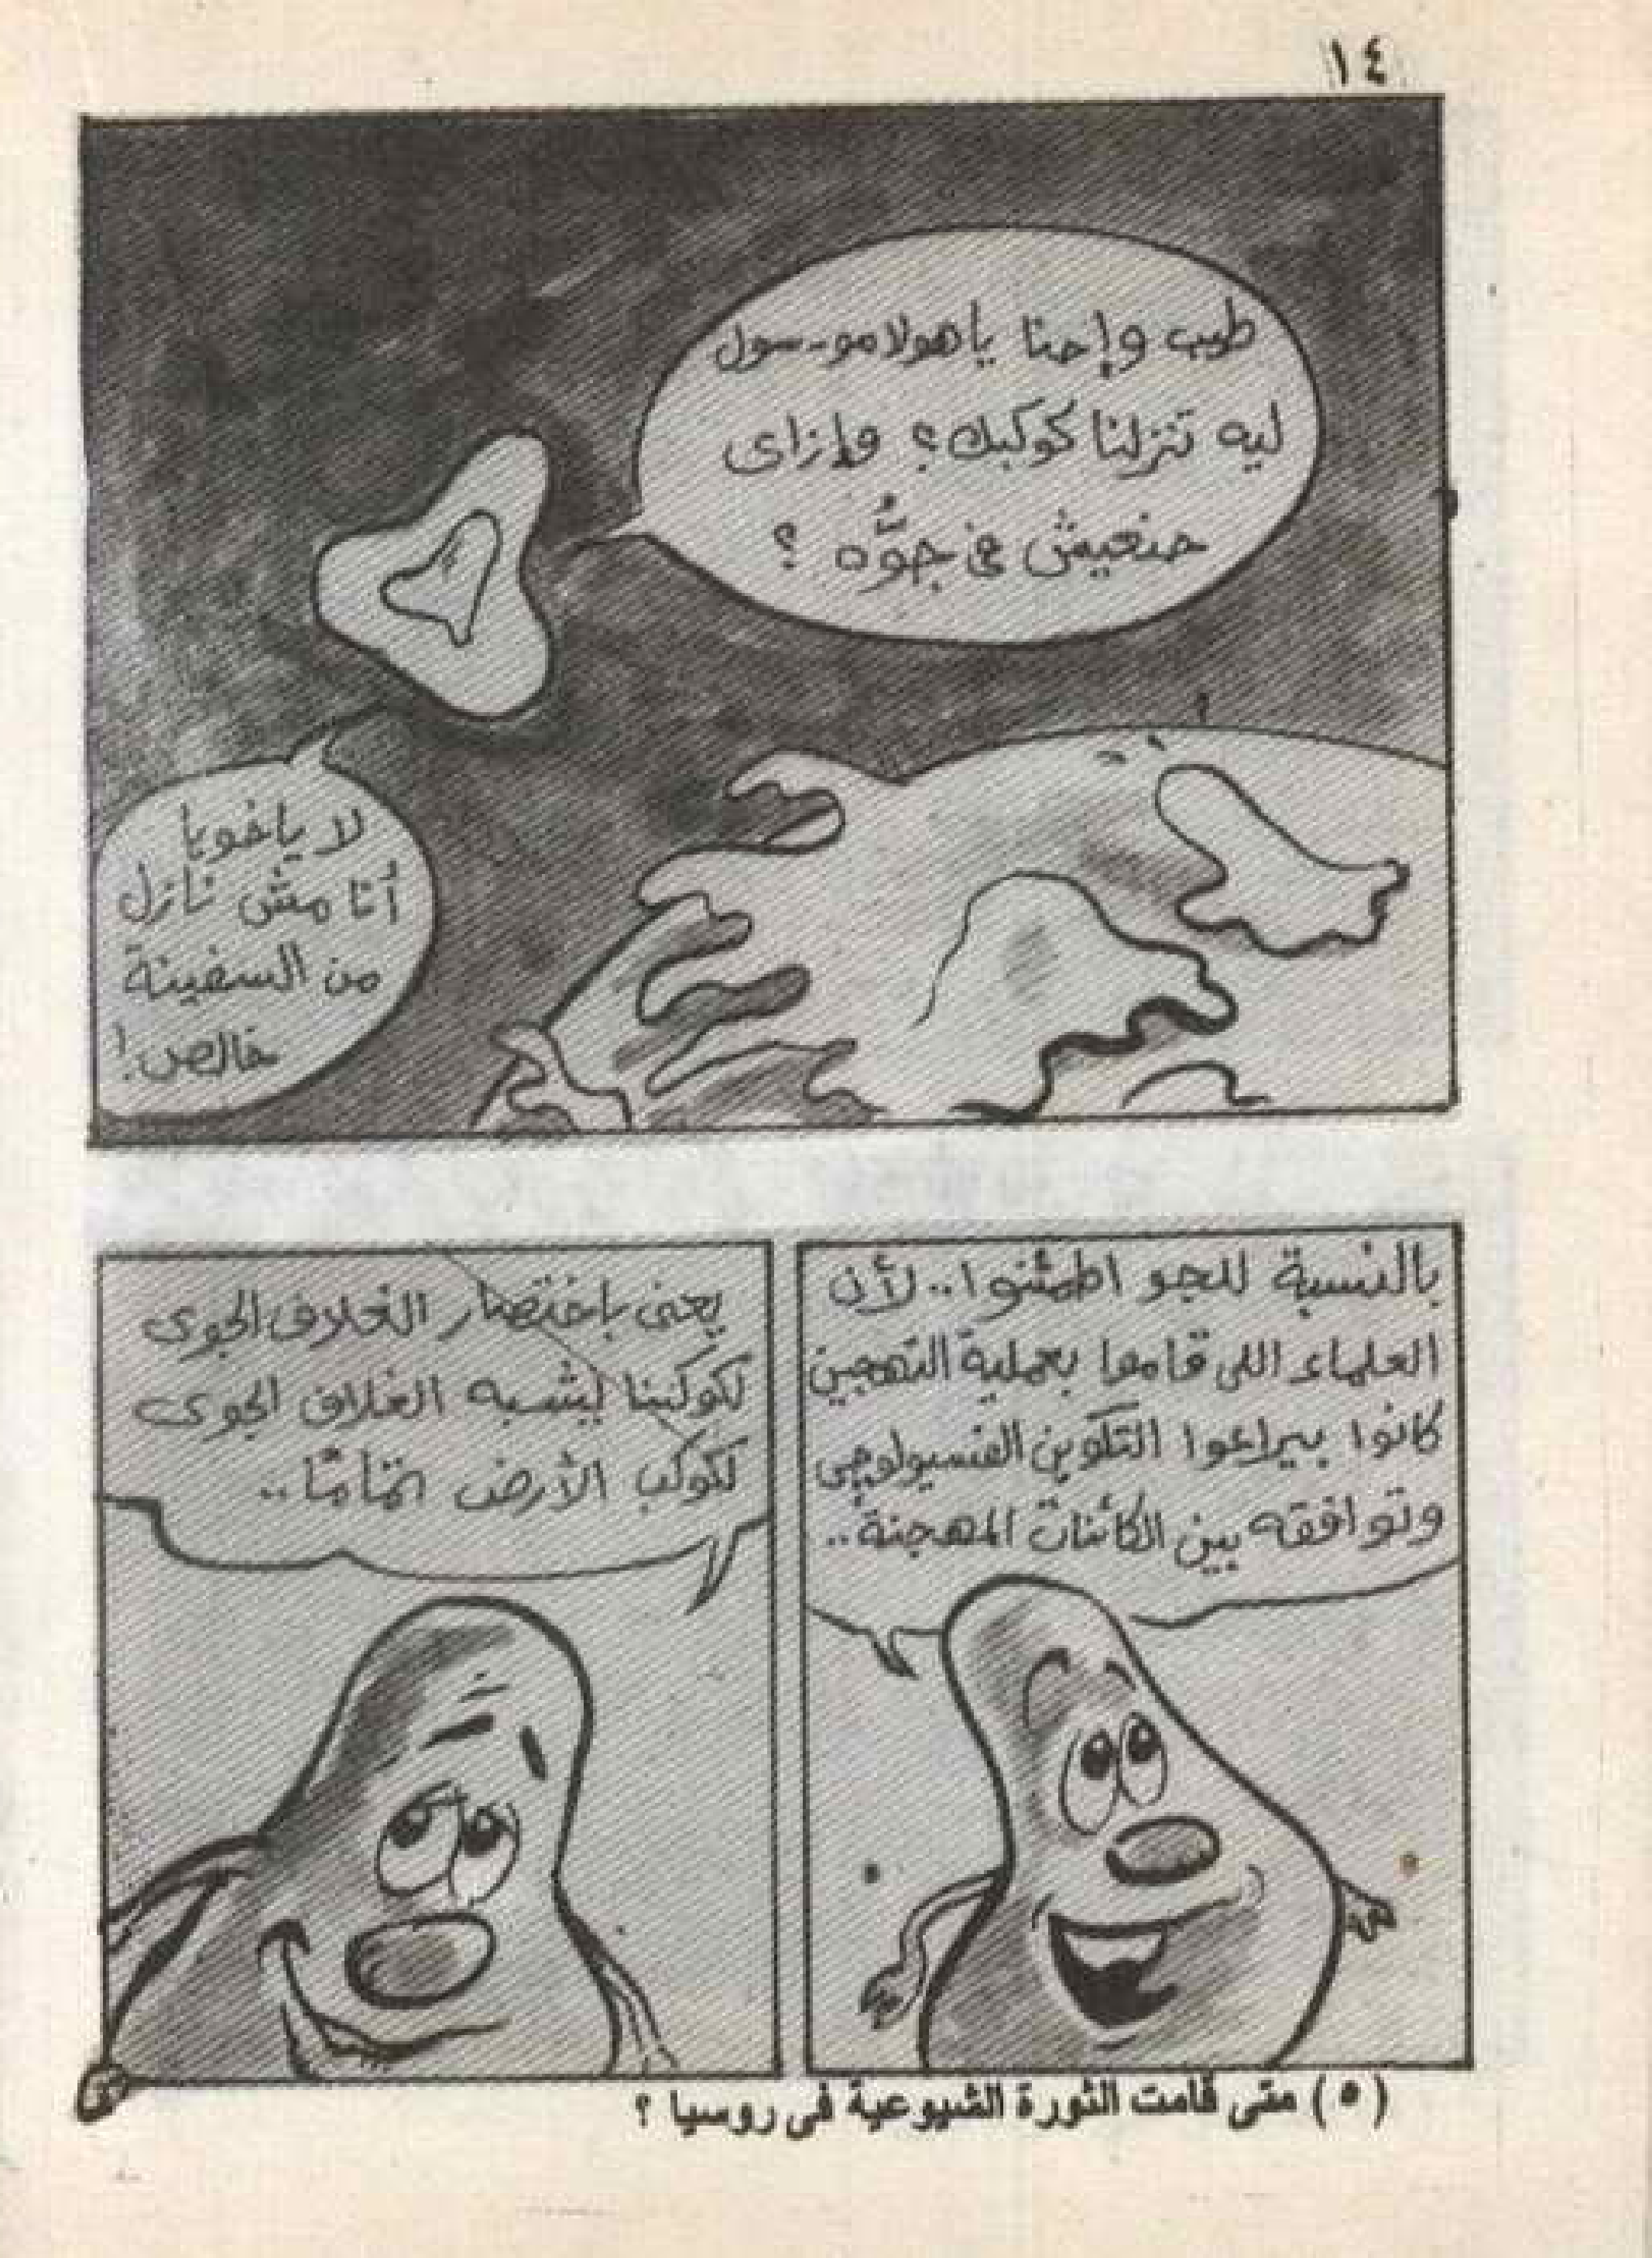 ١٤
طيب وإحنا ياهولامو-سول
ليه تنزلنا كوكبك؟ وإزاى
حنعيش فى جوُّه ؟
لا ياخويا
أنا مش نازل
من السفينة
خالص!
بالنسبة للجو اطمئنوا.. لأن
العلماء اللى قاموا بعملية التهجين
كانوا بيراعوا التكوين الفسيولوجى
وتوافقه بين الكائنات المهجنة..
يعنى باختصار الغلاف الجوى
لكوكبنا يشبه الغلاف الجوى
لكوكب الأرض تمامًا..
(٥) متى قامت الثورة الشيوعية فى روسيا ؟